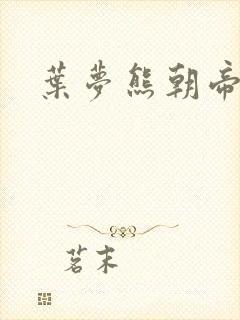 葉夢熊朝帝
茗末